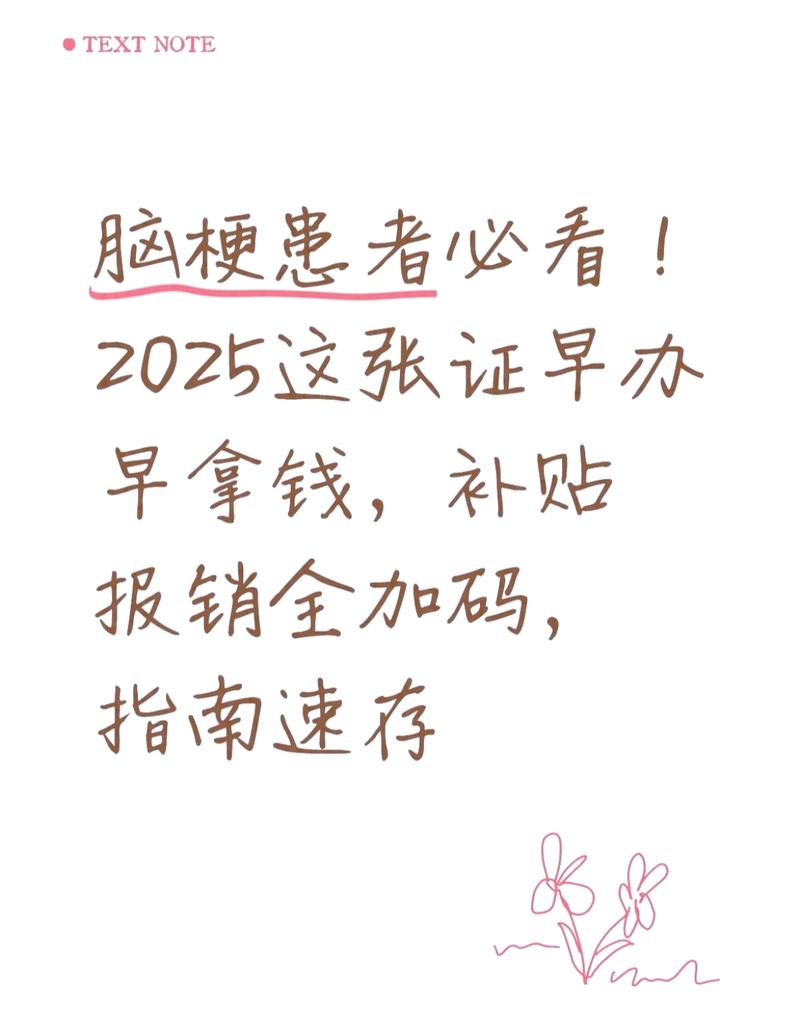 TEXT NOTE
脑梗患者必看！
2025这张证早办
早拿钱，补贴
报销全加码，
指南速存